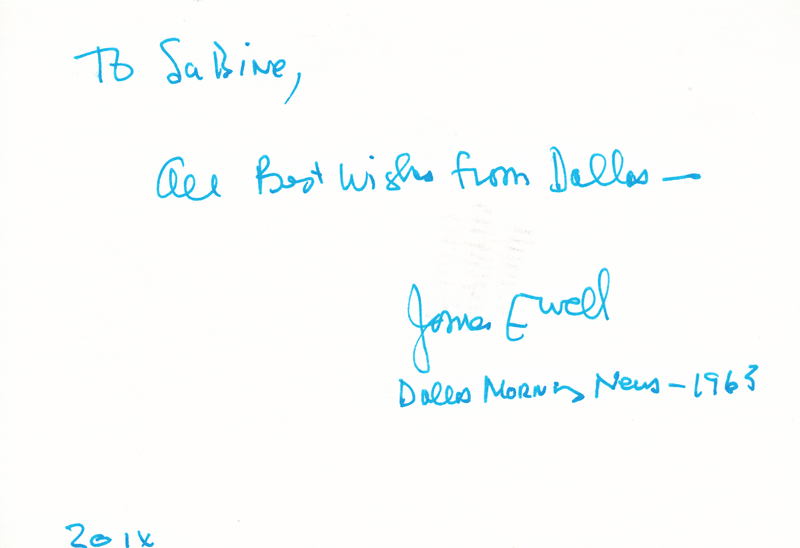 To Sabine,
All Best Wishes from Dallas —
James Ewell
Dallas Morning News - 1963